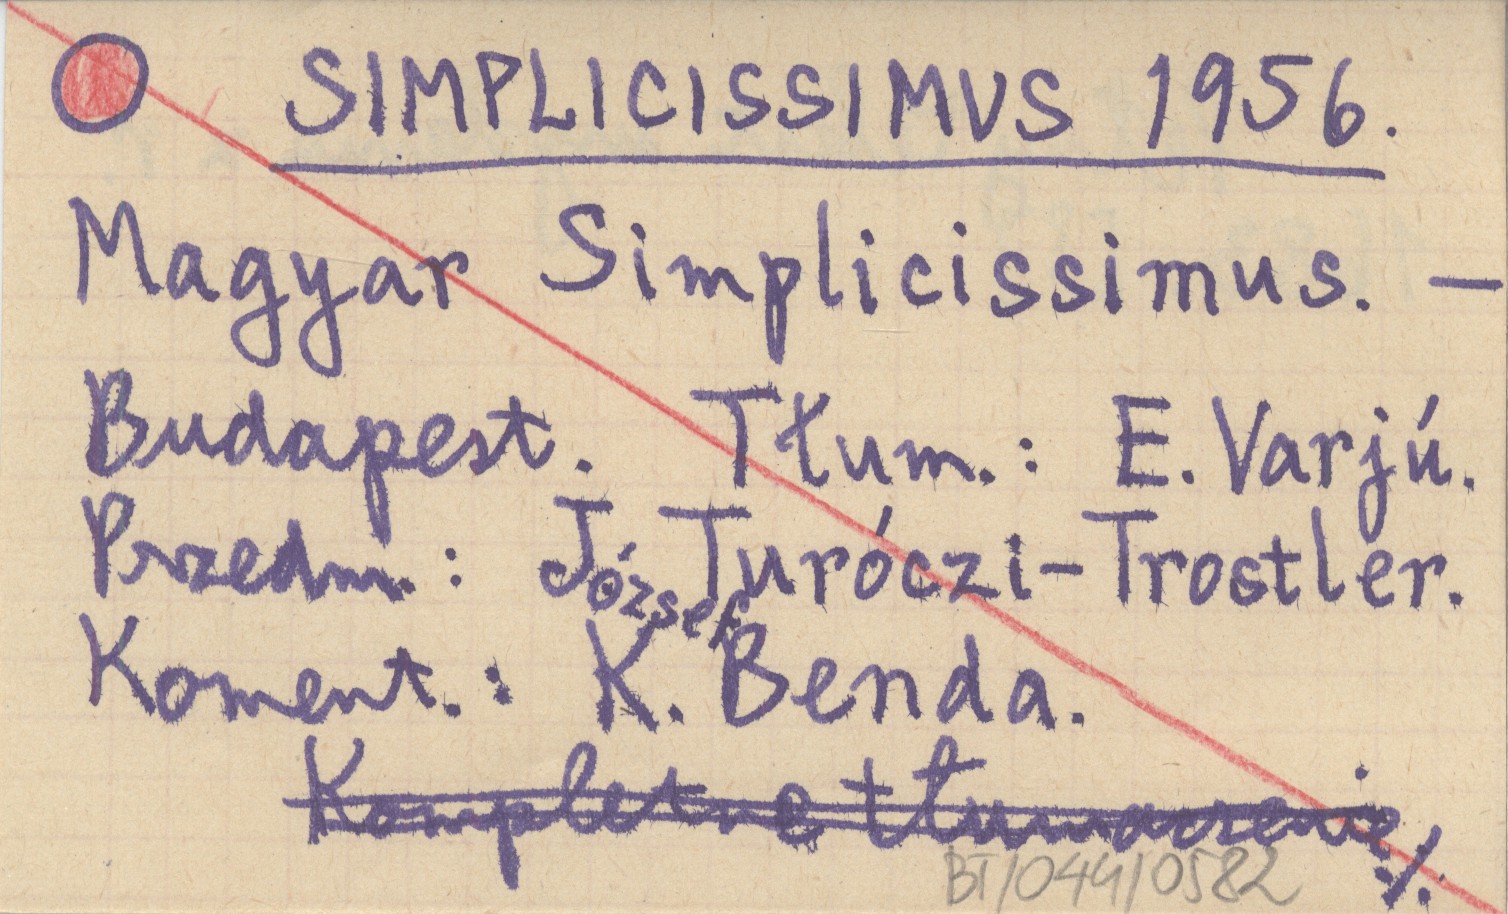 SIMPLICISSIMUS 1956.
Magyar Simplicissimus. —
Budapest. Tłum.: E. Varjú.
Przedm.: József Turóczi-Trostler.
Koment.: K. Benda.
Kompletne tłumaczenie ./.
BT/044/0582